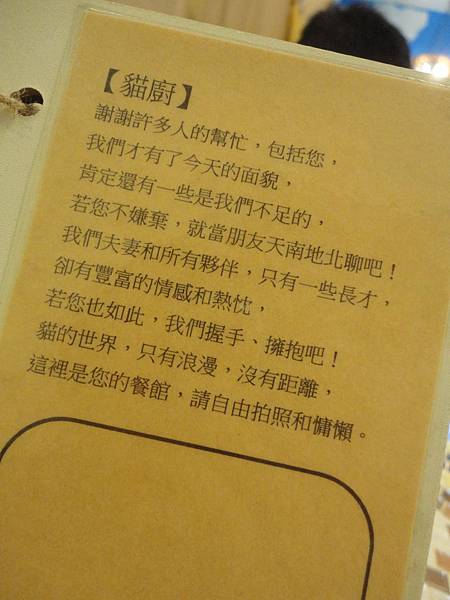 【貓廚】
謝謝許多人的幫忙，包括您，
我們才有了今天的面貌，
肯定還有一些是我們不足的，
若您不嫌棄，就當朋友天南地北聊吧！
我們夫妻和所有夥伴，只有一些長才，
卻有豐富的情感和熱忱，
若您也如此，我們握手、擁抱吧！
貓的世界，只有浪漫，沒有距離，
這裡是您的餐館，請自由拍照和慵懶。